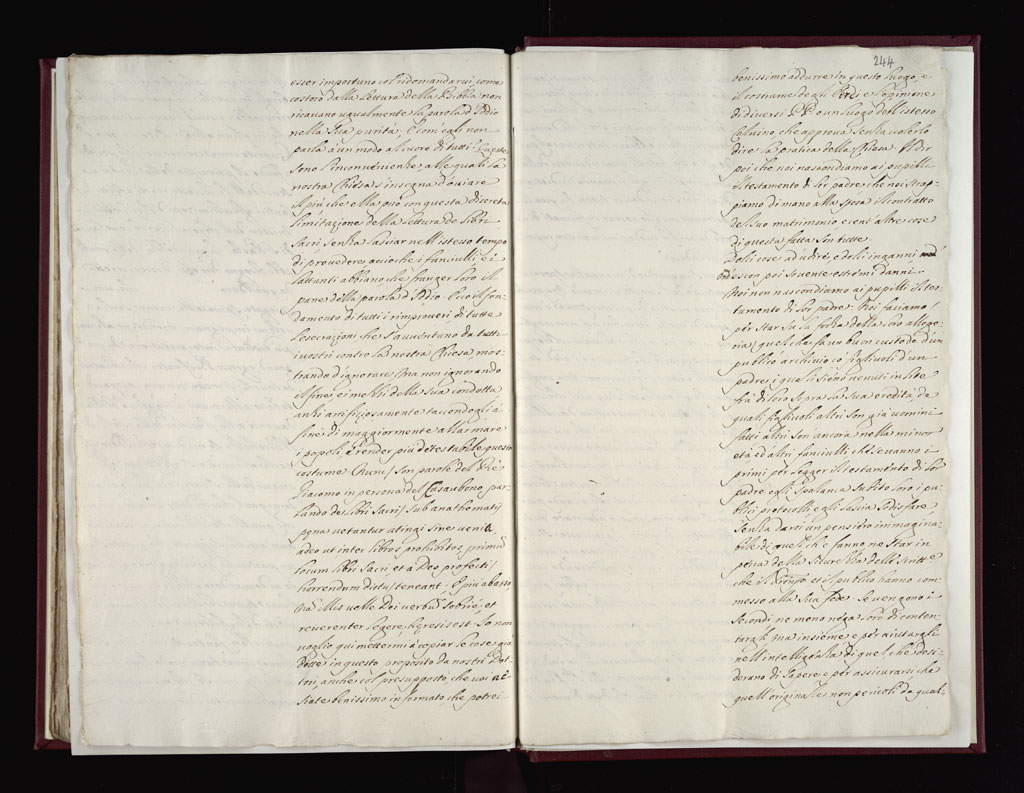 esser importuno col ridomandarui, come
costoro dalla lettura della Bibbia non
ricauano ugualmente la parola d'Iddio
nella sua purità, e com egli non
parla à un modo al cuore di tutti? Queste
sono l'inconuenienze, alle quali la
nostra Chiesa s'insegna d'ouiare
il più che ella può con questa discreta
limitazione della lettura de libri
sacri senza lasciar nell'istesso tempo
di prouedere accioche i fanciulli e i
lattanti abbiano chi franger loro il
pane della parola d'Iddio. Ecco il fon-
damento di tutti i rimproueri di tutte
l'esecrazioni che s'auuentano da tutti
i uostri contro la nostra Chiesa, mos-
trando d'ignorare (ma non ignorando
il fine, ei motiui della sua condotta
anzi artifiziosamente tacendogli à
fine di maggiormente allarmare
i popoli e render più detestabile questo
costume. Nunc (son parole del Rè
Giacomo in persona del Casaubono par-
lando de libri sacri) sub anathematis
pęna uetantur atingi sine uenia,
adeo ut inter libros prohibitos, primũ
locum libri sacri et à Deo profecti (
horrendum dictu) teneant. E più abasso,
Nã illis uelle Dei verbũ sobriè, et
reuerenter legere, hęresis est. Io non
uoglio qui mettermi à copiar le cose già
dette in questo proposito da nostri Dot-
tori, anche col presupposto, che uoi ne
siate benissimo informato, che potrei
244
benissimo addurre in questo luogo, e
il costume degli Ebrei e l'opinione
di diuersi P.P. o un luogo dell'istesso
Caluino che approua senza uolerlo
dire la pratica della Chiesa. Il dir
poi che noi nascondiamo ai pupilli
il testamento di lor padre che noi strap-
piamo di mano alla sposa il contratto
del suo matrimonio e cent'altre cose
di questa fatta son tutte
Dolci cose ad udire, e dolci inganni
Ond'escon poi souente estremi danni.
Noi non nascondiamo ai pupilli il tes-
tamento di lor padre: Noi facciamo
per star su la forza della loro allego-
ria (quel che fa un buon custode d'un
publico archiuio co' figliuoli d'un
padre, i quali sieno uenuti in lite
frà di loro sopra la sua eredità de
quali figliuoli altri son già uomini
fatti altri son'ancora nella minor
età ed altri fanciulli che se uanno i
primi per legger il testamento di lor
padre egli spalanca subito loro i pu-
blici protocolli e gli lascia sodisfare
senza darsi un pensiero immagina-
bile di quel che fanno ne star in
pena della sicurezza delle scritt.e
che il Principe et il publico hanno com-
messo alla sua fede. Se uengono i
secondi ne meno nega loro di conten-
targli, ma insieme e per aiutargli
nell'intelligenza di quel che desi-
derano di sapere e per assicurarsi che
quell'originale non pericoli da qual-